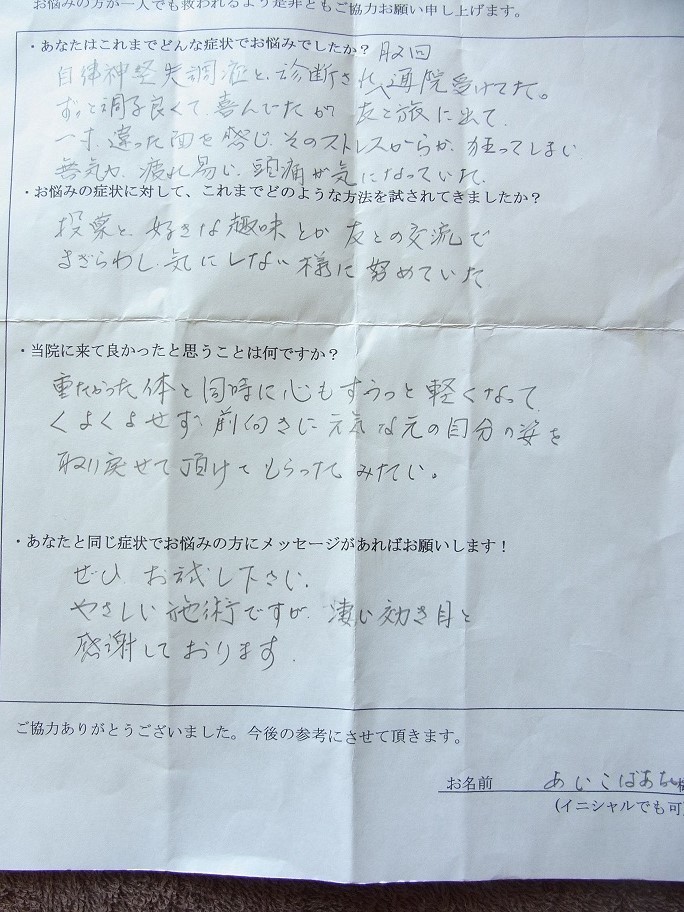 お悩みの方が一人でも救われるよう是非ともご協力お願い申し上げます。
・あなたはこれまでどんな症状でお悩みでしたか? 月2回
自律神経失調症と、診断され、通院受けてた。
ずっと調子良くて、喜んでたが 友と旅に出て、
一寸、違った面を感じ、そのストレスからか、狂ってしまい
無気力、疲れ易い、頭痛が気になっていた。
・お悩みの症状に対して、これまでどのような方法を試されてきましたか?
投薬と、好きな趣味とか 友との交流で
まぎらわし、気にしない様に努めていた
・当院に来て良かったと思うことは何ですか?
重たかった体と同時に心もすうっと軽くなって、
くよくよせず 前向きに元気な元の自分の姿を
取り戻せて頂けてもらったみたい。
・あなたと同じ症状でお悩みの方にメッセージがあればお願いします!
ぜひ、お試し下さい、
やさしい施術ですが、凄い効き目と
感謝しております。
ご協力ありがとうございました。今後の参考にさせて頂きます。
お名前 あいこばあちゃん様
(イニシャルでも可